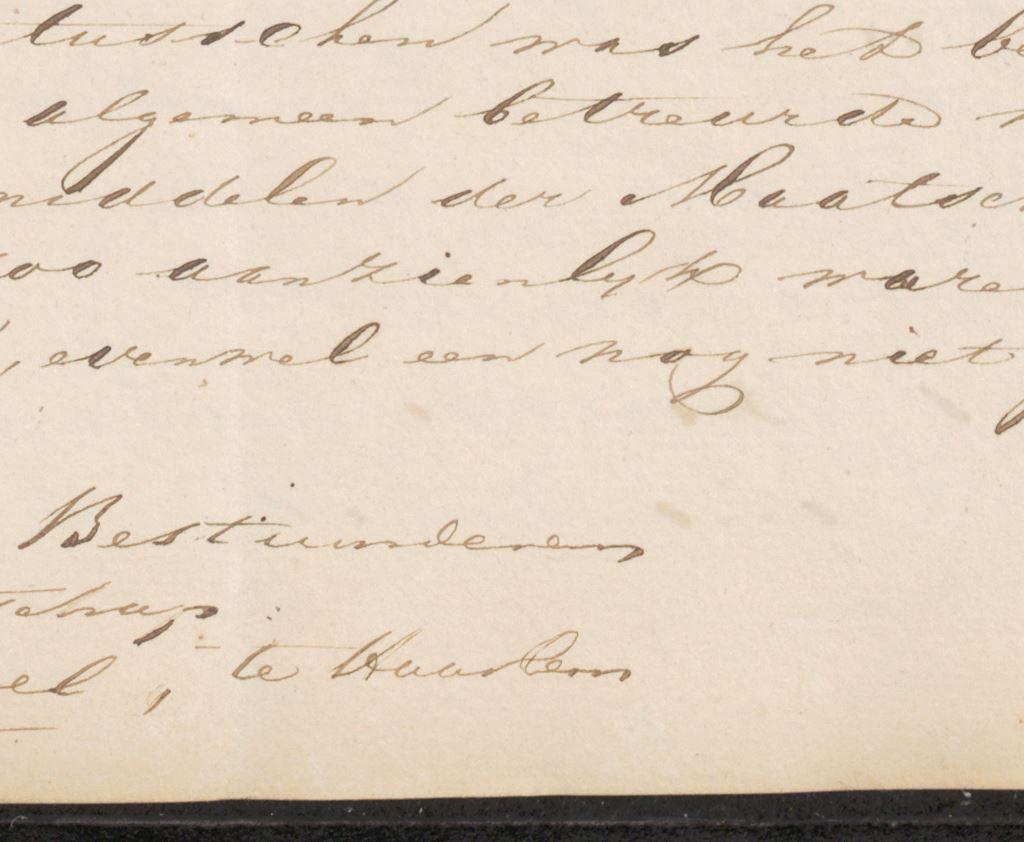 tusschen was het be
algemeen betreurde
middelen der Maatsch
zoo aanzienlyk ware
, evenwel een nog niet
Bestuurderen
tschap
el, te Haarlem